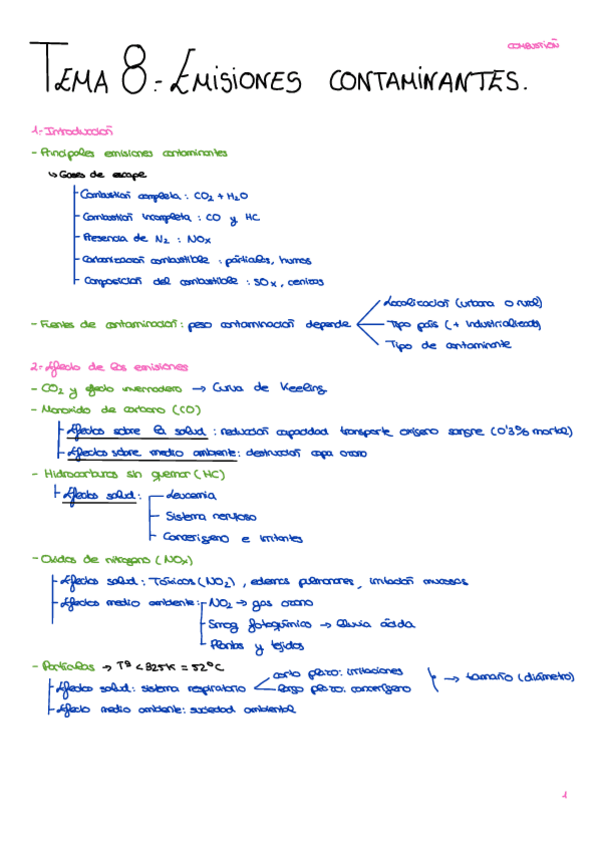 COMBUSTIÓN
TEMA 8.- EMISIONES CONTAMINANTES.
1.- Introducción
- Principales emisiones contaminantes
↳ Gases de escape
Combustión completa : CO₂ + H₂O
Combustión incompleta : CO y HC
Presencia de N₂ : NOx
Carbonización combustible : partículas, humos
Composición del combustible : SOx, cenizas
- Fuentes de contaminación : peso contaminación depende
Localización (urbana o rural)
Tipo país (+ industrializado)
Tipo de contaminante
2.- Efecto de las emisiones
- CO₂ y efecto invernadero → Curva de Keeling
- Monóxido de carbono (CO)
Efectos sobre la salud : reducción capacidad transporte oxígeno sangre (0'3% mortal)
Efectos sobre medio ambiente : destrucción capa ozono
- Hidrocarburos sin quemar (HC)
Efectos salud :
Leucemia
Sistema nervioso
Cancerígeno e irritantes
- Óxidos de nitrógeno (NOx)
Efectos salud : Tóxicos (NO₂) , edemas pulmonares, irritación mucosas
Efectos medio ambiente : NO₂ → gas ozono
Smog fotoquímico → lluvia ácida
Plantas y tejidos
- Partículas → Tª < 325K = 52ºC
Efectos salud : sistema respiratorio
corto plazo : irritaciones
largo plazo : cancerígeno
→ tamaño (diámetro)
Efecto medio ambiente : suciedad ambiental
1